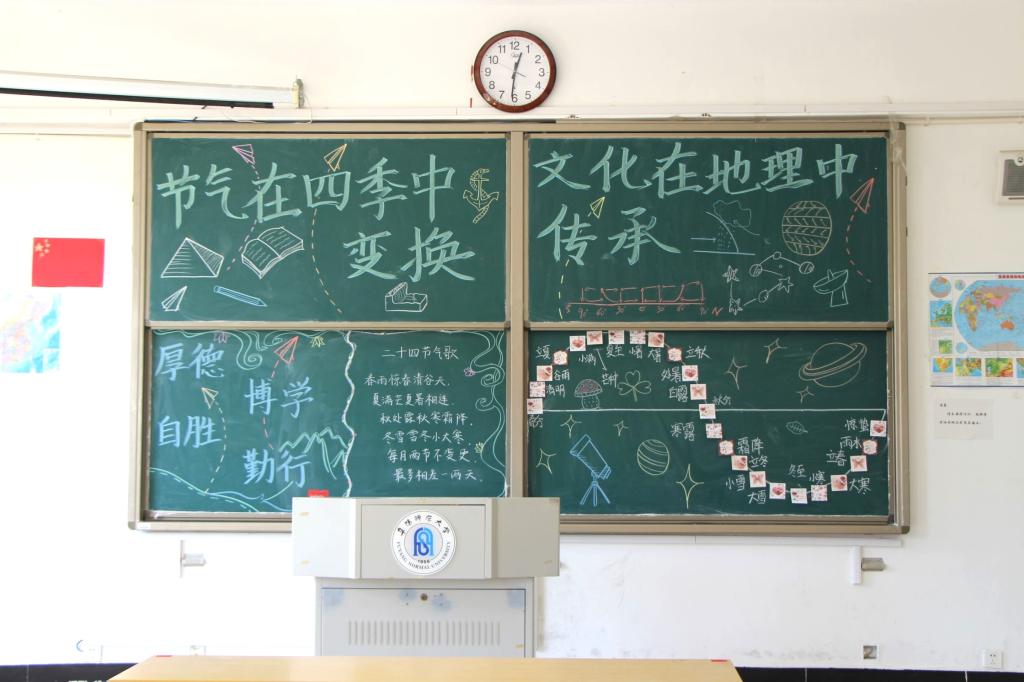 12
1
2
3
4
5
6
7
8
9
10
11
节气在四季中
变换
文化在地理中
传承
N
厚德
博学
自胜
勤行
二十四节气歌
春雨惊春清谷天,
夏满芒夏暑相连
秋处露秋寒霜降
冬雪雪冬小大寒
每月两节不变更
最多相差一两天
立夏
小满
夏至
小暑
大暑
立秋
谷雨
清明
芒种
处暑
白露
秋分
春分
寒露
霜降
立冬
小雪
大雪
冬至
小寒
大寒
立春
雨水
惊蛰
阜阳师范大学
1956
FUYANG NORMAL UNIVERSITY